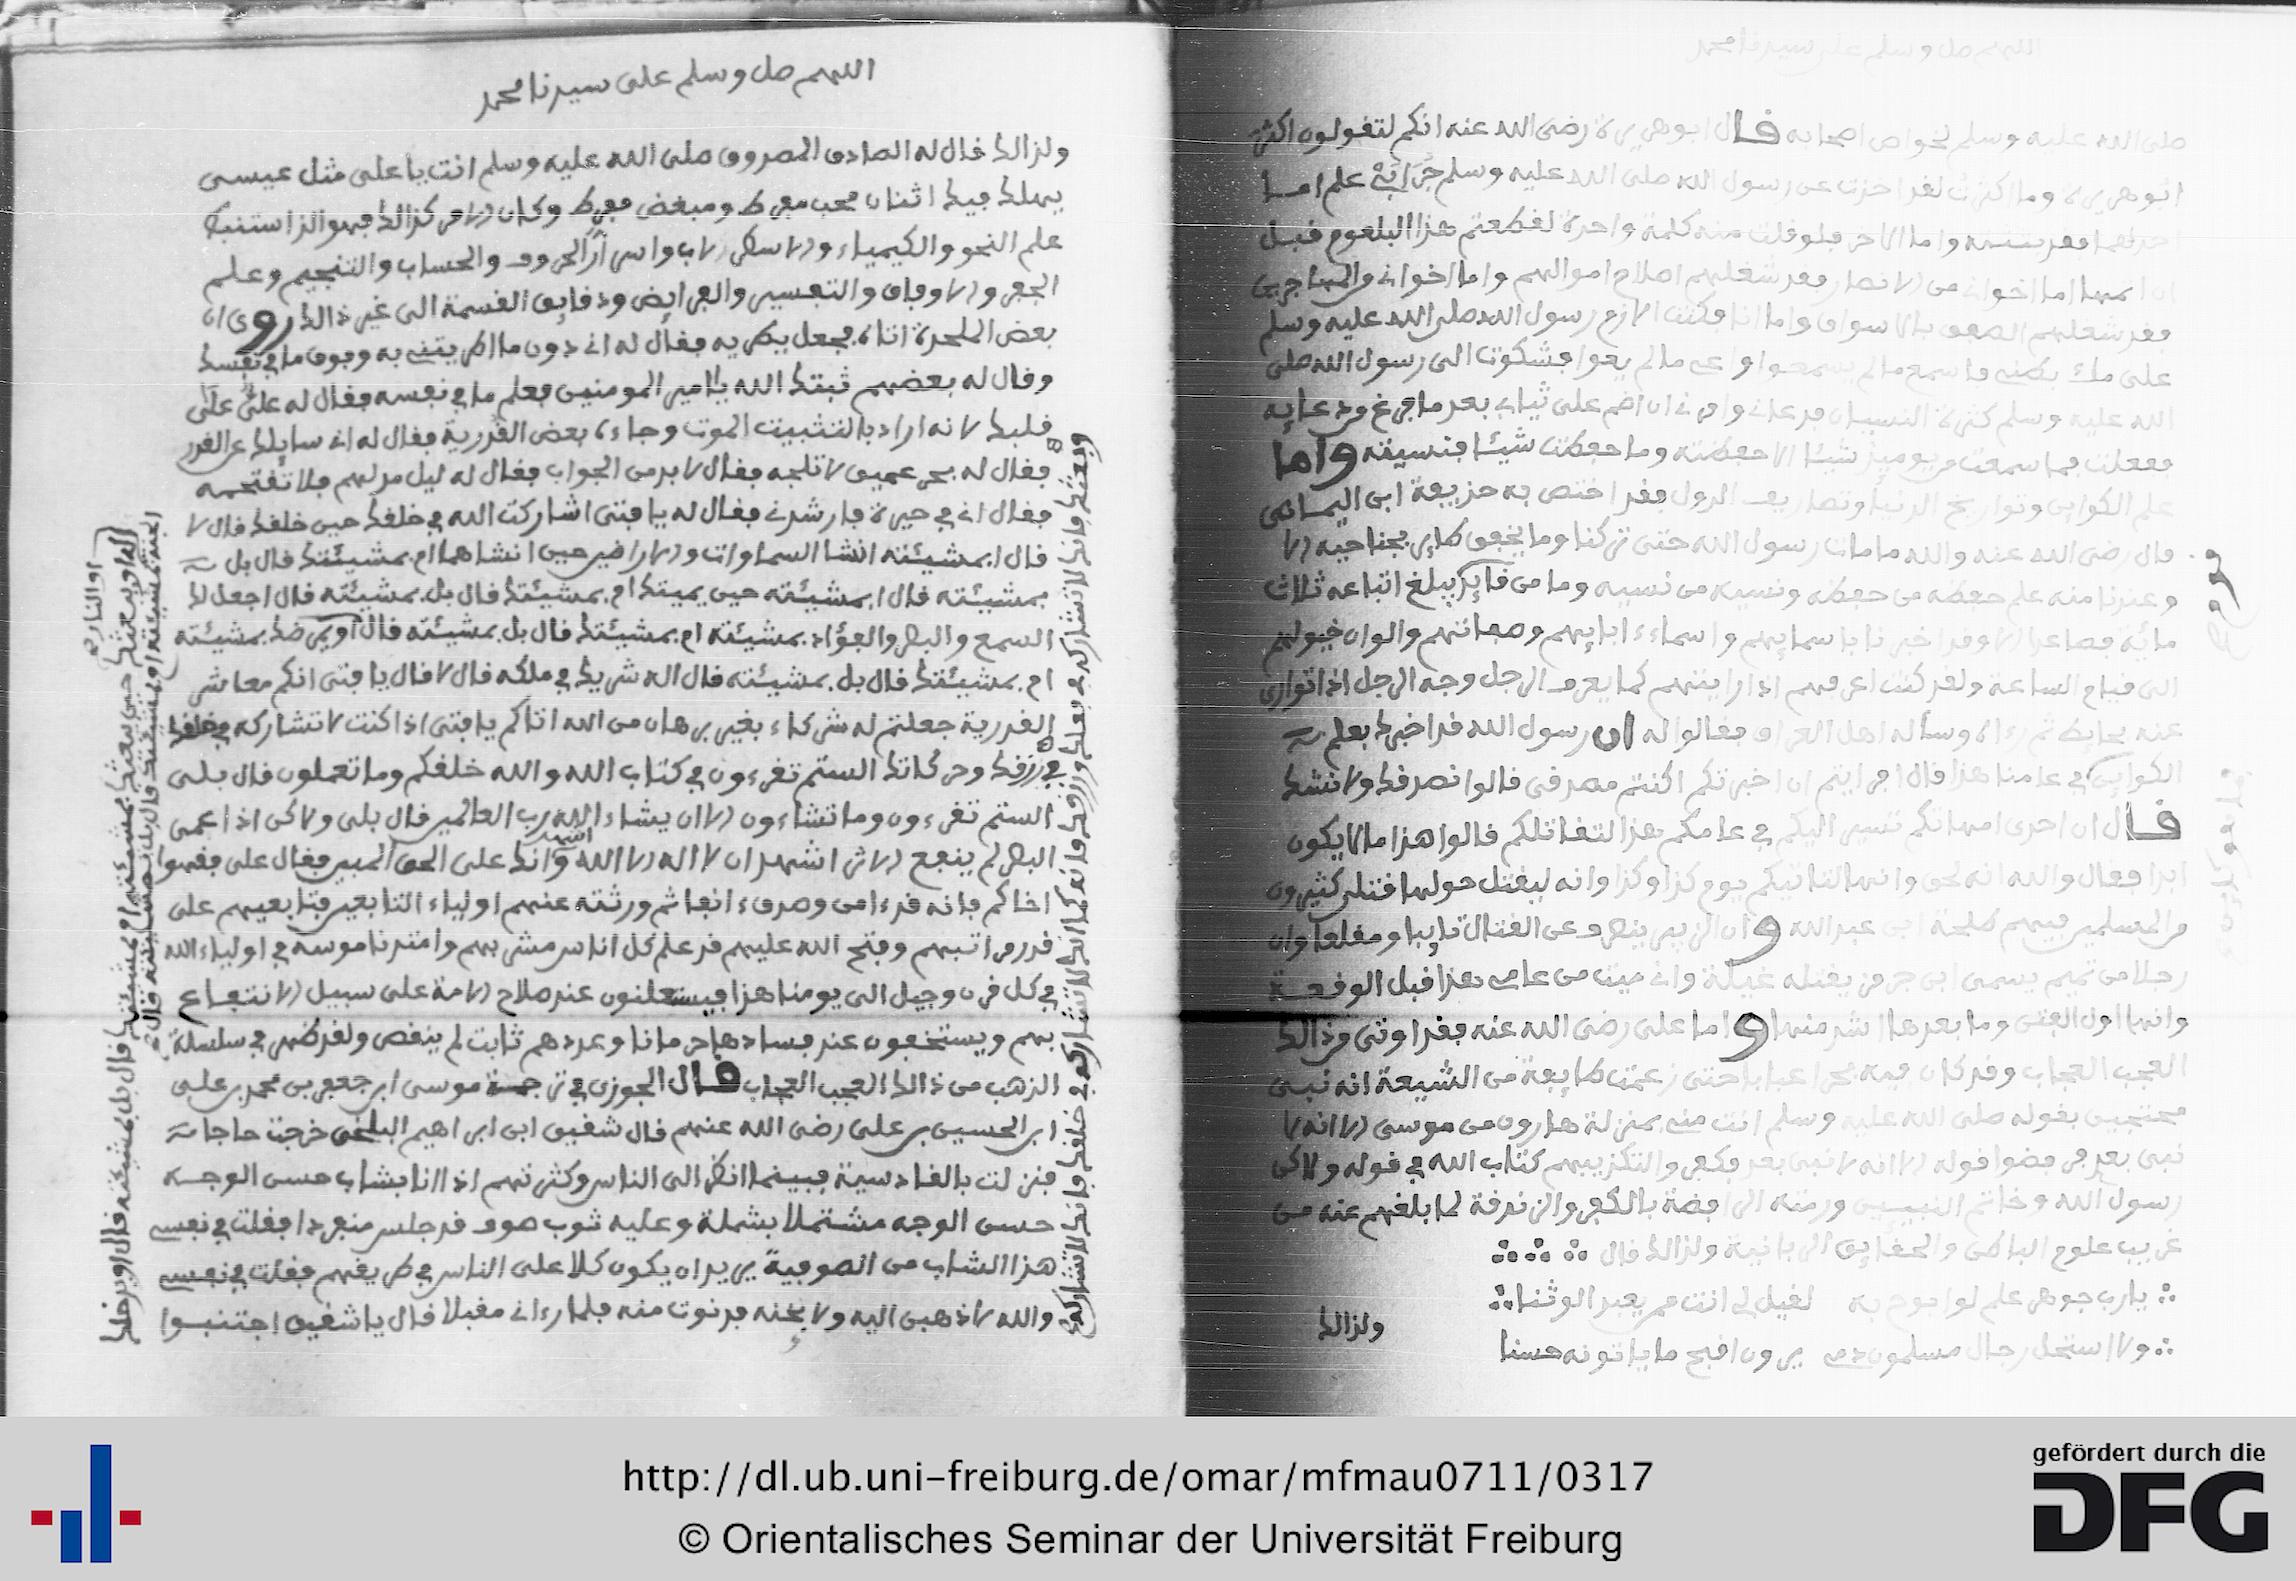 اللهم صل وسلم على سيدنا محمد
صلى الله عليه وسلم لخواص اصحابه فال ابو هريرة رضى الله عنه انكم لتفولون اكثرت
ابو هريرة وما اكثرت لفد اخذت عن رسول الله صلى الله عليه وسلم جرابين علم اما
احدهما ففد بثثته واما الاخر فلو فلت منه كلمة واحدة لفطعتم هذا البلعوم فبل
اما اخوانى من الانصار ففد شغلهم اصلاح اموالهم واما اخوانى من المهاجرين
ففد شغلهم الصفق بالاسواق واما انا فكنت الازم رسول الله صلى الله عليه وسلم
على ملء بطنى فاسمع ما لم يسمعوا واعى ما لم يعوا فشكوت الى رسول الله صلى
الله عليه وسلم كثرة النسيان فدعانى وامرنى ان اضم على ثيابى بعد ما فرغ من دعايه
ففعلت فما سمعت من يوميذ شيئا الا حفظته وما حفظت شيئا فنسيته واما
علم الكواين وتواريخ الدنيا وتصاريف الدول ففد اختص به حذيفة ابن اليمان
فال رضى الله عنه والله ما مات رسول الله حتى تركنا وما يخفق طاير بجناحيه الا
وعندنا منه علم حفظه من حفظه ونسيه من نسيه وما من فايد يبلغ اتباعه ثلاث
ماية فصاعدا الا وفد اخبرنا باسمايهم واسماء ابايهم وصفاتهم والوان خيولهم
الى فيام الساعة ولفد كنت اعرفهم اذا رايتهم كما يعرف الرجل وجه الرجل اذا توارى
عنه بحايط ثم رءاه وساله اهل العراق ففالوا له ان رسول الله فد اخبرك بعلم
الكواين فى عامنا هذا فال ارايتم ان اخبرتكم اكنتم مصدفى فالوا نصدفك ولا نشك
فال ان احدى امهاتكم تسير اليكم فى عامكم هذا لتفاتلكم فالوا هذا ما لا يكون
ابدا ففال والله انه لحق وانها لتاتيكم يوم كذا وكذا وانه ليفتل حولها فتلى كثيرون
من المسلمين فيهم طلحة ابن عبد الله وان الزبير ينصرف عن الفتال تايبا ومفلعا وان
رجلا من تميم يسمى ابن جرموز يفتله غيلة وانى ميت من عامى هذا فبل الوفعة
وانها اول الفتن وما بعدها اشد منها واما على رضى الله عنه ففد اوتى من ذالك
العجب العجاب وفد كان فيه بحرا عبابا حتى زعمت طايفة من الشيعة انه نبى
محتجين بفوله صلى الله عليه وسلم انت منى بمنزلة هارون من موسى الا انه لا
نبى بعدى فرفضوا فوله الا انه لا نبى بعدى والتكذيبهم كتاب الله فى فوله ولاكن
رسول الله وخاتم النبيين ورمته الرافضة بالكفر والزندفة لما بلغهم عنه من
غريب علوم الباطن والحفايق الربانية ولذالك فال
يارب جوهر علم لو ابوح به لفيل لى انت ممن يعبد الوثنا
ولا استحل رجال مسلمون دمى يرون افبح ما ياتونه حسنا
ولذالك
اللهم صل وسلم على سيدنا محمد
ولذالك فال له الصادق المصدوق صلى الله عليه وسلم انت يا على مثل عيسى
يهلك فيك اثنان محب مفرط ومبغض مفرط وكان الامر كذالك فهو الذى استنبط
علم النحو والكيمياء والاسطرلاب واسرار الحروف والحساب والتنجيم وعلم
الجفر والاوفاق والتفسير والفرايض ودفايق الفسمة الى غير ذالك روى ان
بعض الملحدة اتاه فجعل يطريه ففال له انى دون ما اطريتنى به وفوق ما فى نفسك
وفال له بعضهم ثبتك الله يا امير المومنين فعلم ما فى نفسه ففال له على على
فلبك لانه اراد بالتثبيت الموت وجاءه بعض الفدرية ففال له انى سايلك عن الفدر
ففال له بحر عميق لا تلجه ففال لا بد من الجواب ففال له ليل مدلهم فلا تفتحمه
ففال انى فى حيرة فارشدنى ففال له يا فتى اشاركت الله فى خلفك حين خلفك فال لا
فال ابمشيئته انشا السماوات والارضين حين انشاهما ام بمشيئتك فال بل
بمشيئته فال ابمشيئته حين يميتك ام بمشيئتك فال بل بمشيئته فال اجعل لك
السمع والبصر والفؤاد بمشيئته ام بمشيئتك فال بل بمشيئته فال اويمرضك بمشيئته
ام بمشيئتك فال بل بمشيئته فال اله شريك فى ملكه فال لا فال يا فتى انكم معاشر
الفدرية جعلتم له شركاء بغير برهان من الله اتاكم يا فتى اذا كنت لا تشاركه فى خلفك
فى رزفك وحركاتك الستم تفرءون فى كتاب الله والله خلفكم وما تعملون فال بلى
الستم تفرءون وما تشاءون الا ان يشاء الله رب العالمين فال بلى ولاكن اذا عمى
البصر لم ينفع الاثر اشهد ان لا اله الا الله واشهد انك على الحق المبين ففال على ففهوا
اخاكم فانه فد ءامن وصدق ثم ورثته عنهم اولياء التابعين فتابعيهم على
فدر مراتبهم وفتح الله عليهم فد علم كل اناس مشربهم وامتد ناموسه فى اولياء الله
فى كل فرن وجيل الى يومنا هذا فيستعلنون عند صلاح الامة على سبيل الانتفاع
بهم ويستخفون عند فسادها حرمانا وعددهم ثابت لم ينفص ولفد ظهر فى سلسلة
الذهب من ذالك العجب العجاب فال الجوزى فى ترجمة موسى ابن جعفر بن محمد بن على
ابن الحسين بن على رضى الله عنهم فال شفيق ابن ابراهيم البلخى خرجت حاجا
فنزلت بالفادسية فبينما انظر الى الناس وكثرتهم اذا انا بشاب حسن الوجه
حسن الوجه مشتملا بشملة وعليه ثوب صوف فد جلس منفردا ففلت فى نفسى
هذا الشاب من الصوفية يريد ان يكون كلا على الناس فى طريفهم ففلت فى نفسى
والله لاذهبن اليه ولاوبخنه فدنوت منه فلما رءانى مفبلا فال يا شفيق اجتنبوا
http://dl.ub.uni-freiburg.de/omar/mfmau0711/0317
© Orientalisches Seminar der Universität Freiburg
gefördert durch die
DFG